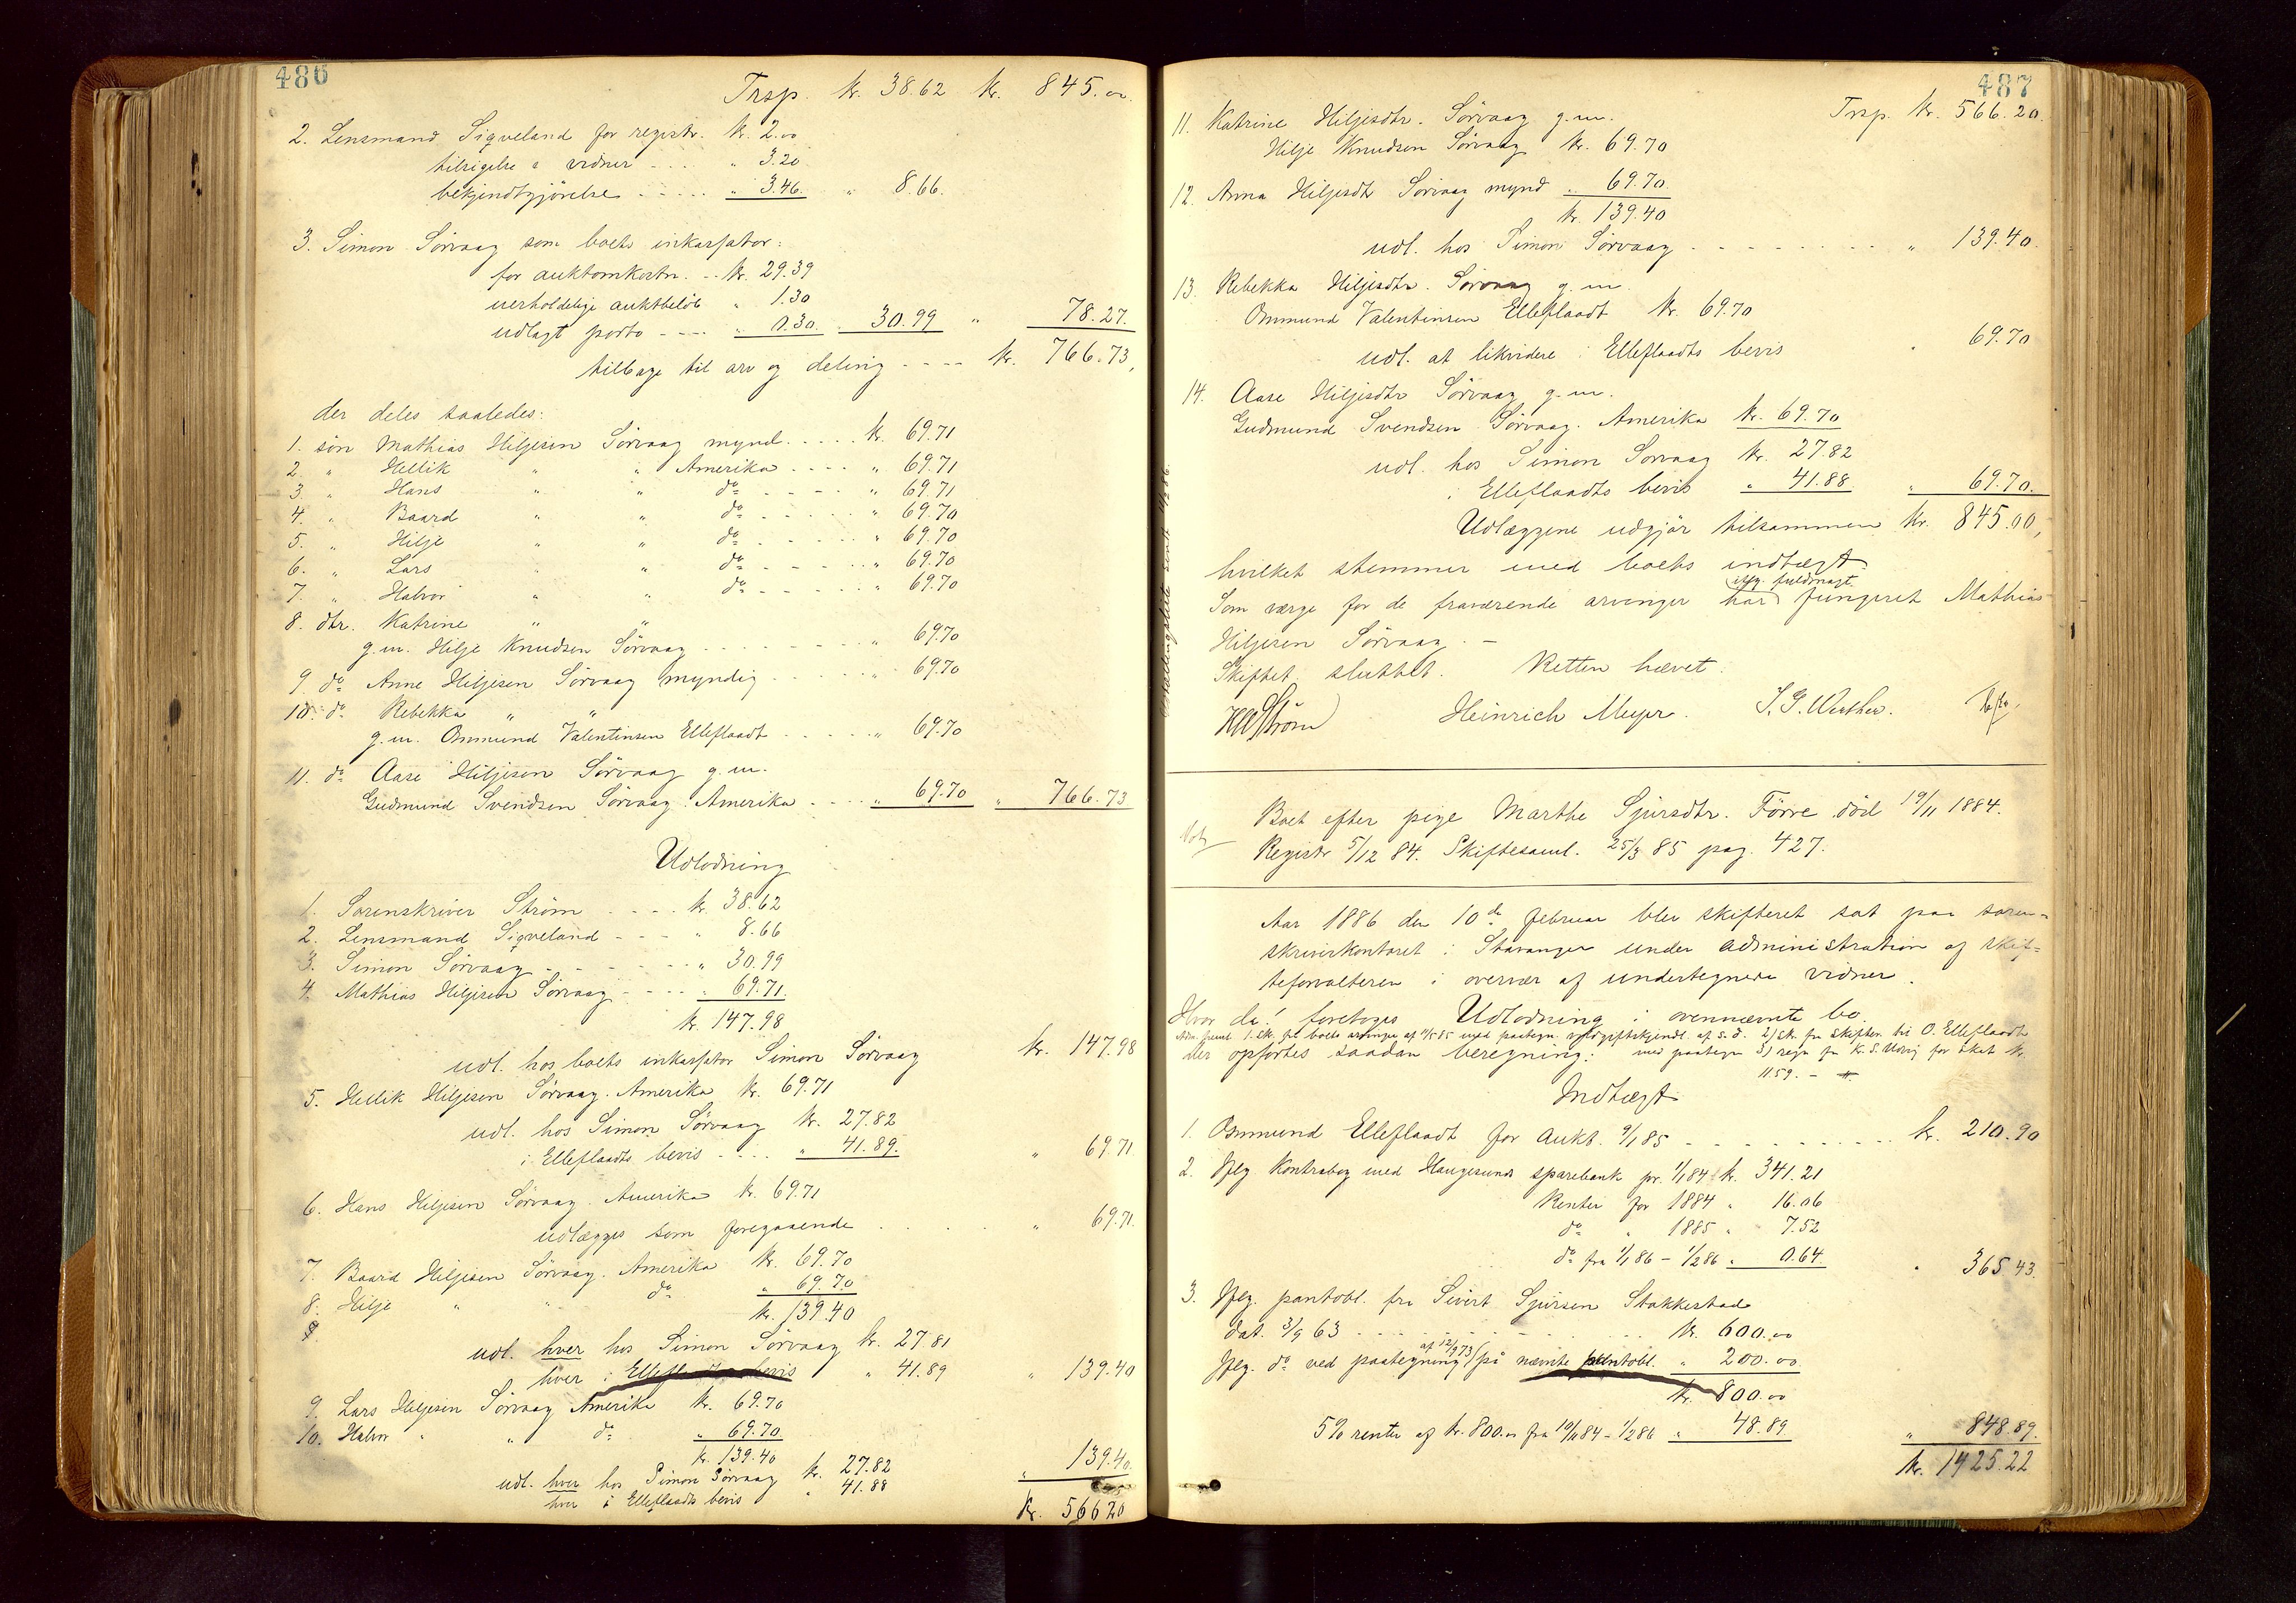 486
Trsp. kr. 38.62 kr. 845.00
2. Lensmand Sigveland for registr. kr. 2.00
tilsigelse a vidner - - - " 3.20
bekjendtgjörelse - - - - - " 3.46. " 8.66.
3. Simon Sörvaag som boets inkassator:
for auktomkostn. - - kr. 29.39
uerholdelige auktbelöb " 1.30
udlagt porto - - - - " 0.30. 30.99 " 78.27.
tilbage til arv og deling - - - - kr. 766.73,
der deles saaledes:
1. sön Mathias Hiljesen Sörvaag mynd. - - - - kr. 69.71
2. " Hellik " " Amerika - - - - " 69.71
3. " Hans " " do - - - - " 69.71
4. " Baard " " do - - - - " 69.70
5. " Hilje " " do - - - - " 69.70
6. " Lars " " do - - - - " 69.70
7. " Halvor " " do - - - - " 69.70
8. dtr. Katrine " "
g. m. Hilje Knudsen Sörvaag - - - - - - - " 69.70
9. do Anne Hiljesen Sörvaag myndig - - - - - " 69.70
10. do Rebekka " "
g. m. Ommund Valentinsen Elleflaadt - - - - - " 69.70
11. do Aase Hiljesen Sörvaag g. m.
Gudmund Svendsen Sörvaag. Amerika - - - " 69.70 " 766.73
Udlodning
1. Sorenskriver Ström - - - - kr. 38.62
2. Lensmand Sigveland - - - " 8.66
3. Simon Sörvaag - - - - - - " 30.99
4. Mathias Hiljesen Sörvaag - - - - " 69.71.
kr. 147.98
udl. hos boets inkassator Simon Sörvaag kr. 147.98
5. Hellik Hiljesen Sörvaag. Amerika kr. 69.71
udl. hos Simon Sörvaag kr. 27.82
i Elleflaadts bevis - - - - " 41.89. " 69.71
6. Hans Hiljesen Sörvaag. Amerika kr. 69.71
udlægges som foregaaende . . . . " 69.71.
7. Baard Hiljesen Sörvaag. Amerika kr. 69.70
8. Hilje " " do " 69.70
kr. 139.40
9.
udl. hver hos Simon Sörvaag kr. 27.81
hver i Elleflaadts bevis " 41.89 " 139.40
9. Lars Hiljesen Sörvaag Amerika kr. 69.70
10. Halvor " " do " 69.70
kr. 139.40
udl. hver hos Simon Sörvaag kr. 27.82 " 139.40.
hver i Elleflaadts bevis " 41.88
kr. 566.20
487
Trsp. kr. 566.20.
11. Katrine Hiljesdtr. Sörvaag g. m.
Hilje Knudsen Sörvaag kr. 69.70
12. Anna Hiljesdtr Sörvaag mynd " 69.70.
kr. 139.40
udl. hos Simon Sörvaag - - - - - - - - " 139.40.
13. Rebekka Hiljesdtr. Sörvaag g. m.
Ommund Valentinsen Elleflaadt kr. 69.70
udl. at likvidere i Elleflaadts bevis " 69.70
14. Aase Hiljesdtr Sörvaag g. m.
Gudmund Svendsen Sörvaag. Amerika kr. 69.70
udl. hos Simon Sörvaag kr. 27.82
i Elleflaadts bevis " 41.88 " 69.70.
Udlæggene udgjör tilsammen kr. 845.00,
hvilket stemmer med boets indtægt.
iflg. fuldmagt
Som værge for de fraværende arvinger har fungeret Mathias
Hiljesen Sörvaag. -
Skiftet sluttet. Retten hævet.
Ström Heinrich Meyer.
Boet efter pige Marthe Sjursdtr. Förre död 19/11 1884.
Registr 5/12 84. Skiftesaml. 25/3 85 pag. 427.
Aar 1886 den 10de februar blev skifteret sat paa soren-
skriverkontoret i Stavanger under administration af skif-
teforvalteren i overvær af undertegnede vidner.
Hvor da! foretoges Udlodning i ovennævnte bo.
der opförtes saadan beregning:
1159. -
Indtægt
1. Ommund Elleflaadt for aukt. 9/1 85 - - - - - - - - kr. 210.90
2. Iflg kontrabog med Haugesunds sparebank pr. 1/1 84 kr. 341.21
Renter for 1884 " 16.06
do " 1885 " 7.52
do fra 1/1 86 - 1/2 86 " 0.64. " 365.43.
3. Iflg. pantobl. fra Sivert Sjursen Stakkestad
dat. 3/9 63 - - - - - - - - kr. 600.00
af 12/9 73
Iflg. do ved paategning på nævnte pantobl. " 200.00.
kr. 800.00
5% rente af kr. 800.00 fra 19/11 84 - 1/2 86 " 48.89 " 848.89.
kr. 1425.22